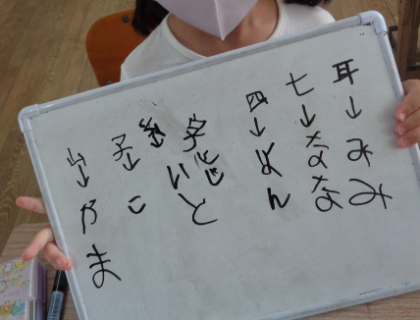 耳→みみ
七→なな
四→よん
字じ
糸→いと
子→こ
山→やま